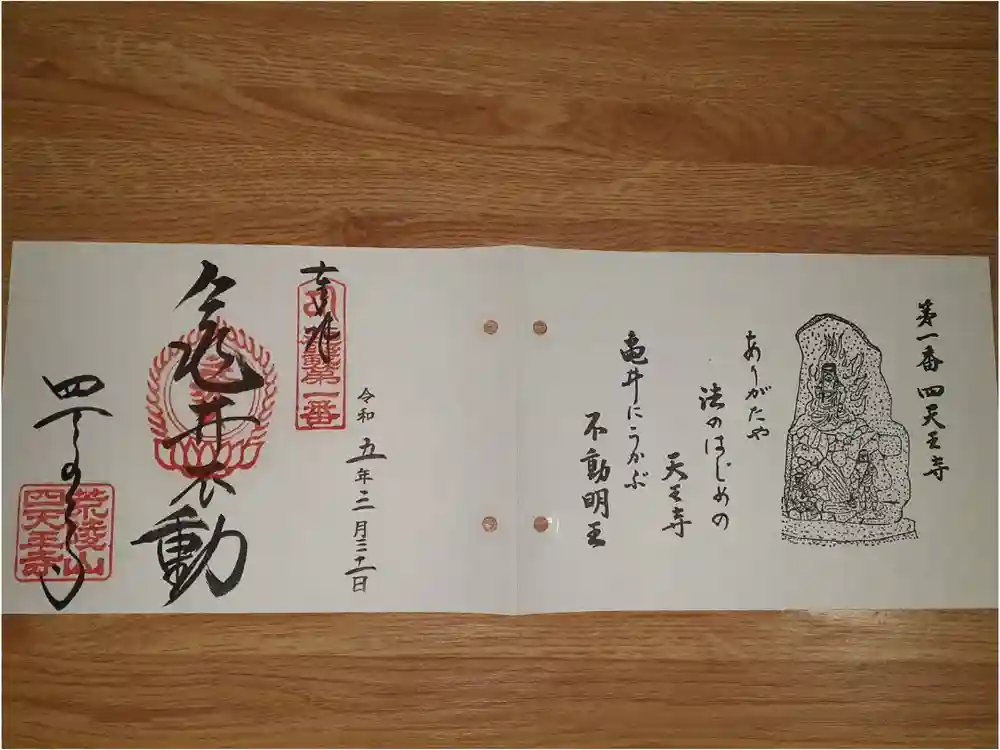 第一番 四天王寺
ありがたや
法のはじめの
天王寺
亀井にうかぶ
不動明王
奉拝
第一番
令和五年
亀井不動
四天王寺
荒陵山
四天王寺